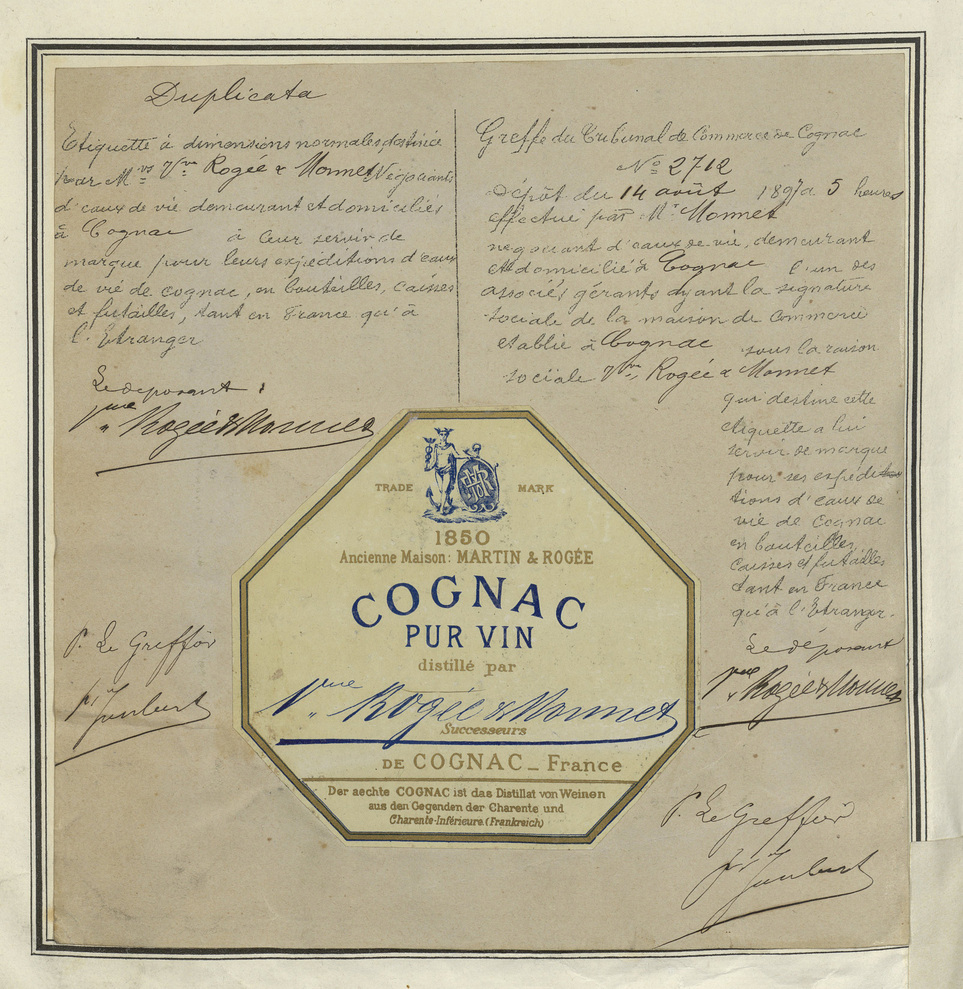 Duplicata
Etiquette à dimensions normales destinée
par M.rs Vve Rogée & Monnet Négociants
d'eaux de vie demeurant et domiciliés
à Cognac à leur servir de
marque pour leurs expéditions d'eaux
de vie de cognac, en bouteilles, caisses
et futailles, tant en France qu'à
l'Etranger
Le déposant :
Vve Rogée & Monnet
P. Le Greffier
Greffe du Tribunal de Commerce de Cognac
No 2712
Dépôt du 14 août 1897 à 5 heures
effectué par Mr Monnet
négociant d'eaux de vie, demeurant
et domicilié à Cognac l'un des
associés gérants ayant la signature
sociale de la maison de commerce
établie à Cognac sous la raison
sociale Vve Rogée & Monnet
qui destine cette
étiquette a lui
servir de marque
pour ses expédi
tions d'eaux de
vie de Cognac
en bouteilles,
caisses et futailles
tant en France
qu'à l'Etranger.
Le déposant
Vve Rogée & Monnet
P. Le Greffier
TRADE MARK
1850
Ancienne Maison: MARTIN & ROGÉE
COGNAC
PUR VIN
distillé par
Vve Rogée & Monnet
Successeurs
DE COGNAC_France
Der aechte COGNAC ist das Distillat von Weinen
aus den Gegenden der Charente und
Charente-Inférieure (Frankreich)